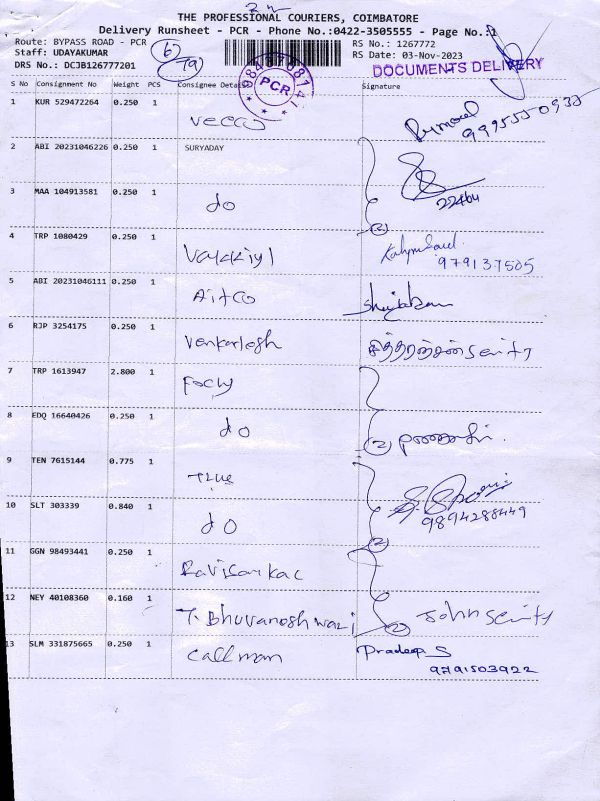 THE PROFESSIONAL COURIERS, COIMBATORE
Delivery Runsheet - PCR - Phone No.:0422-3505555 - Page No.:1
Route: BYPASS ROAD - PCR
RS No.: 1267772
Staff: UDAYAKUMAR
RS Date: 03-Nov-2023
DRS No.: DCJB126777201
DOCUMENTS DELIVERY
PCR
S No Consignment No Weight PCS Consignee Details Signature
1 KUR 529472264 0.250 1 veeco
2 ABI 20231046226 0.250 1 SURYADAY
3 MAA 104913581 0.250 1 do
22464
4 TRP 1080429 0.250 1
979137505
5 ABI 20231046111 0.250 1 Aitco
6 RJP 3254175 0.250 1 Venkatesh
7 TRP 1613947 2.800 1
8 EDQ 16640426 0.250 1 do
9 TEN 7615144 0.775 1 True
10 SLT 303339 0.840 1 do
9894288449
11 GGN 98493441 0.250 1 Ravisankar
12 NEY 40108360 0.160 1 T. Bhuvaneshwari
13 SLM 331875665 0.250 1 Callmom Pradeep S
9791503922